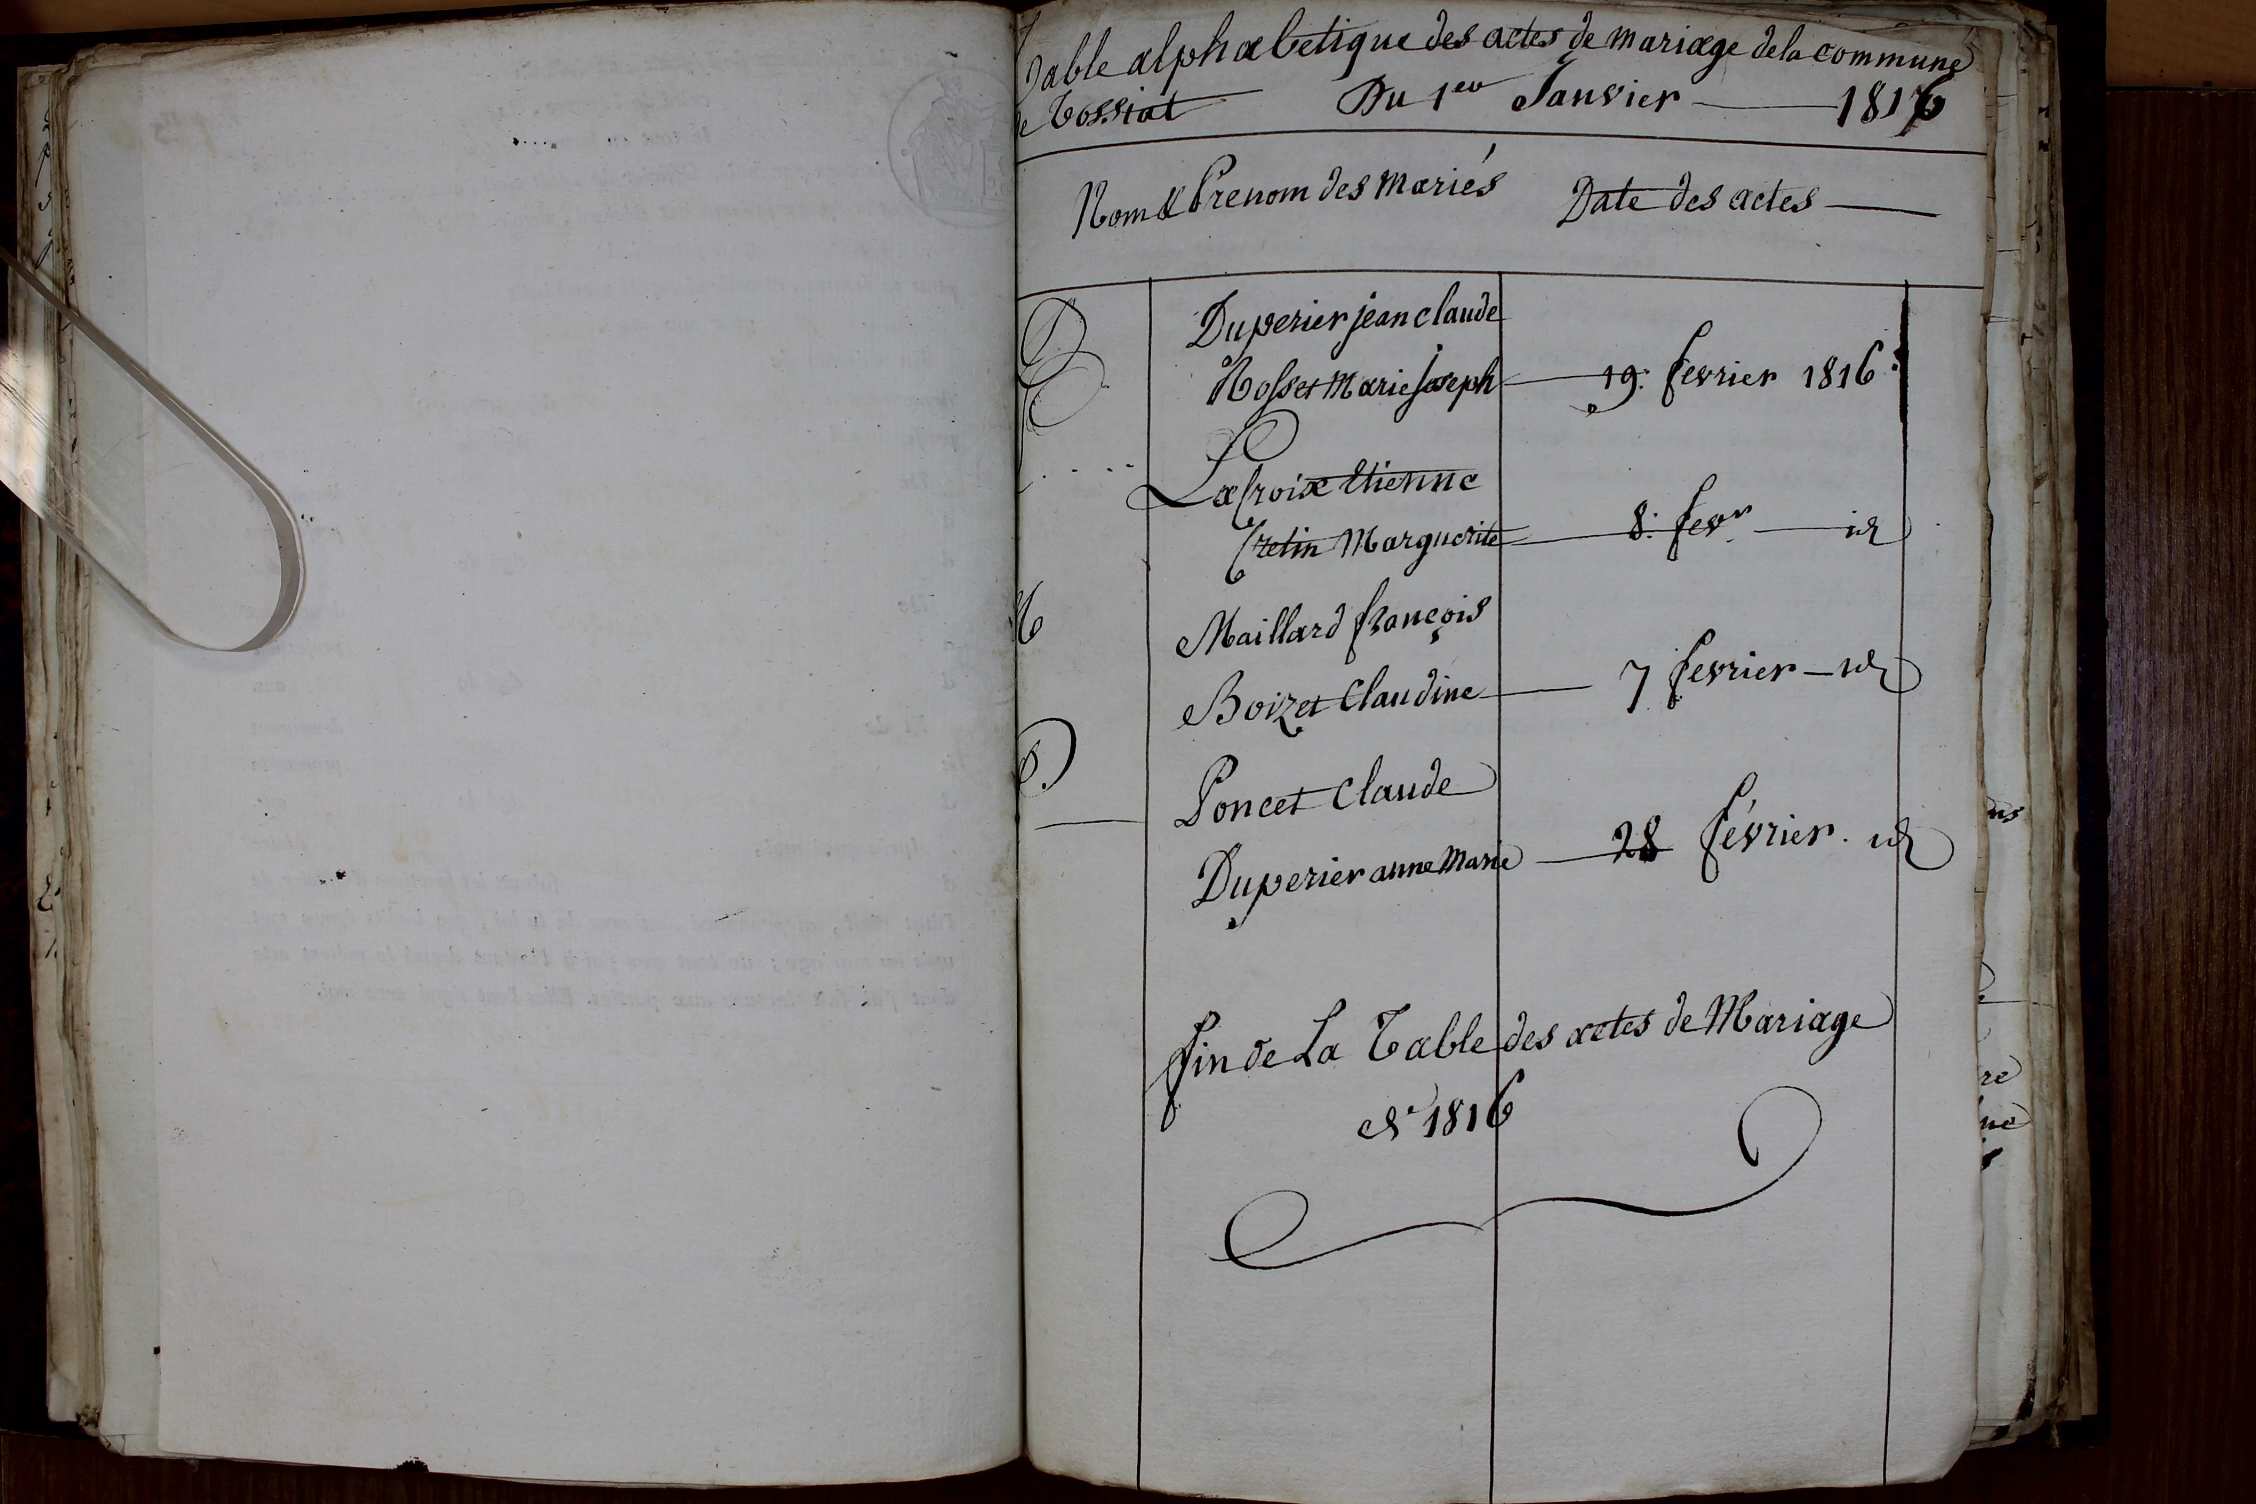 Table alphabetique des actes de mariage de la commune
de Tossiat Du 1er Janvier 1816
Nom & Prenom des mariés Date des actes
D Duperier jean claude
Rosset Marie Joseph 19. fevrier 1816
L Lacroix Etienne
Cretin Marguerite 8. fevr id
M Maillard françois
Boizet Claudine 7 fevrier id
P. Poncet Claude
Duperier anne Marie 28 février. id
fin de La Table des actes de Mariage
1816